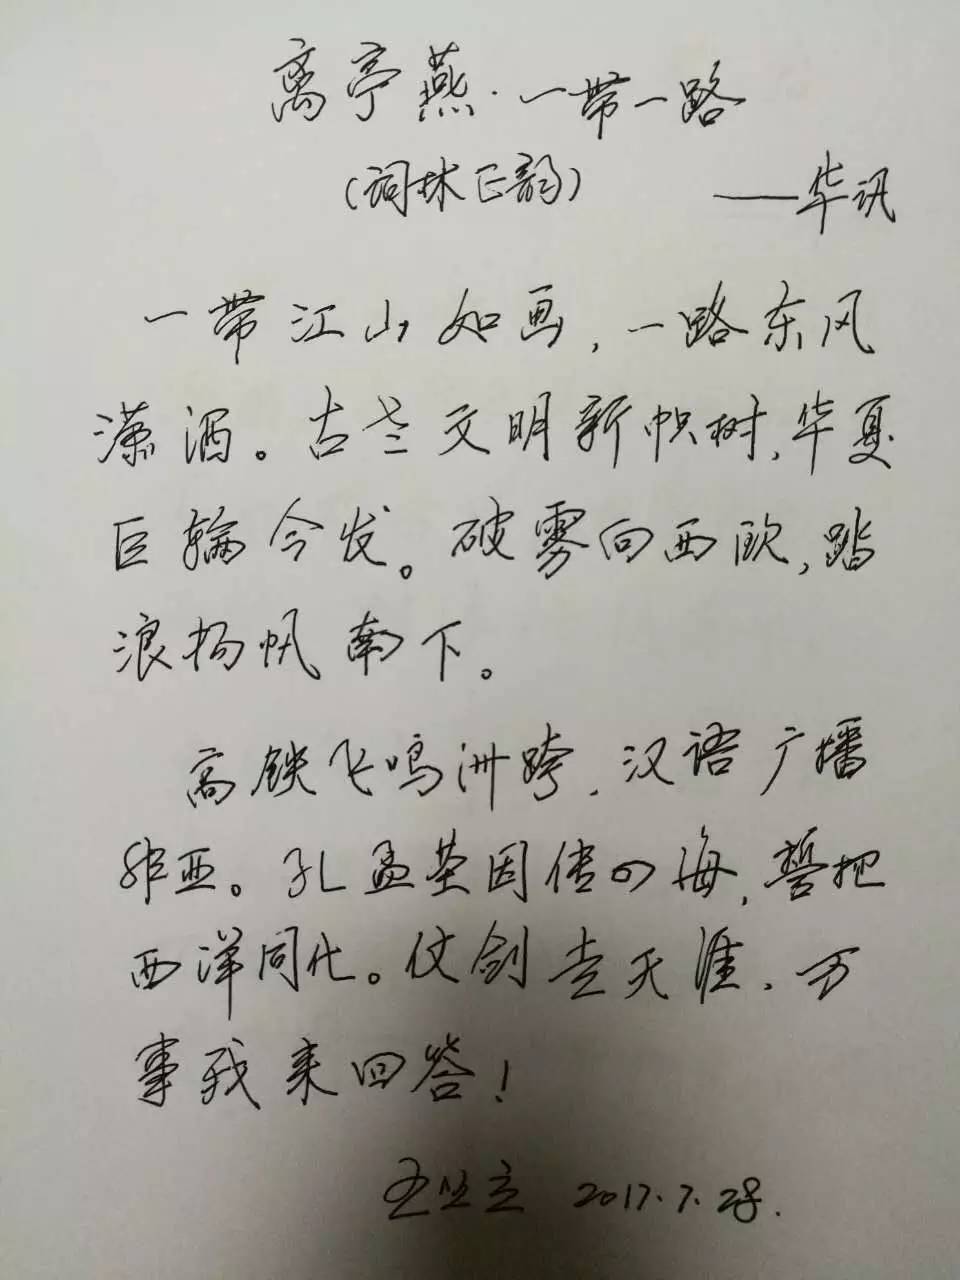 离亭燕·一带一路
(词林正韵) ——华讯
一带江山如画,一路东风
潇洒。古老文明新帜树,华夏
巨轮今发。破雾向西欧,踏
浪扬帆南下。
高铁飞鸣洲跨,汉语广播
非亚。孔孟基因传四海,誓把
西洋同化。仗剑走天涯,万
事我来回答!
2017.7.28.